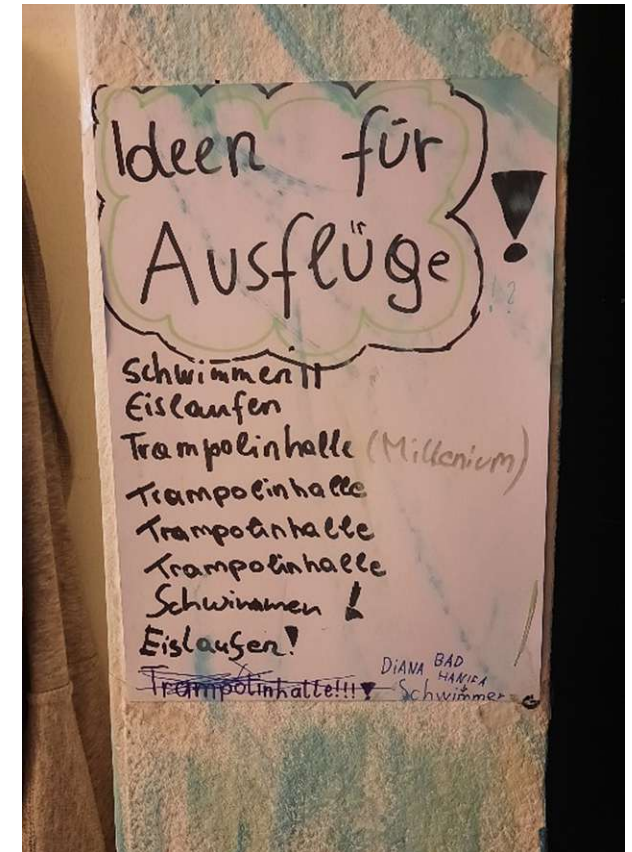 Ideen für
Ausflüge !
!?
Schwimmen!!
Eislaufen
Trampolinhalle (Millenium)
Trampolinhalle
Trampolinhalle
Trampolinhalle
Schwimmen !
Eislaufen!
Trampolinhalle!!!
DiANA BAD
HANIFA
Schwimmen